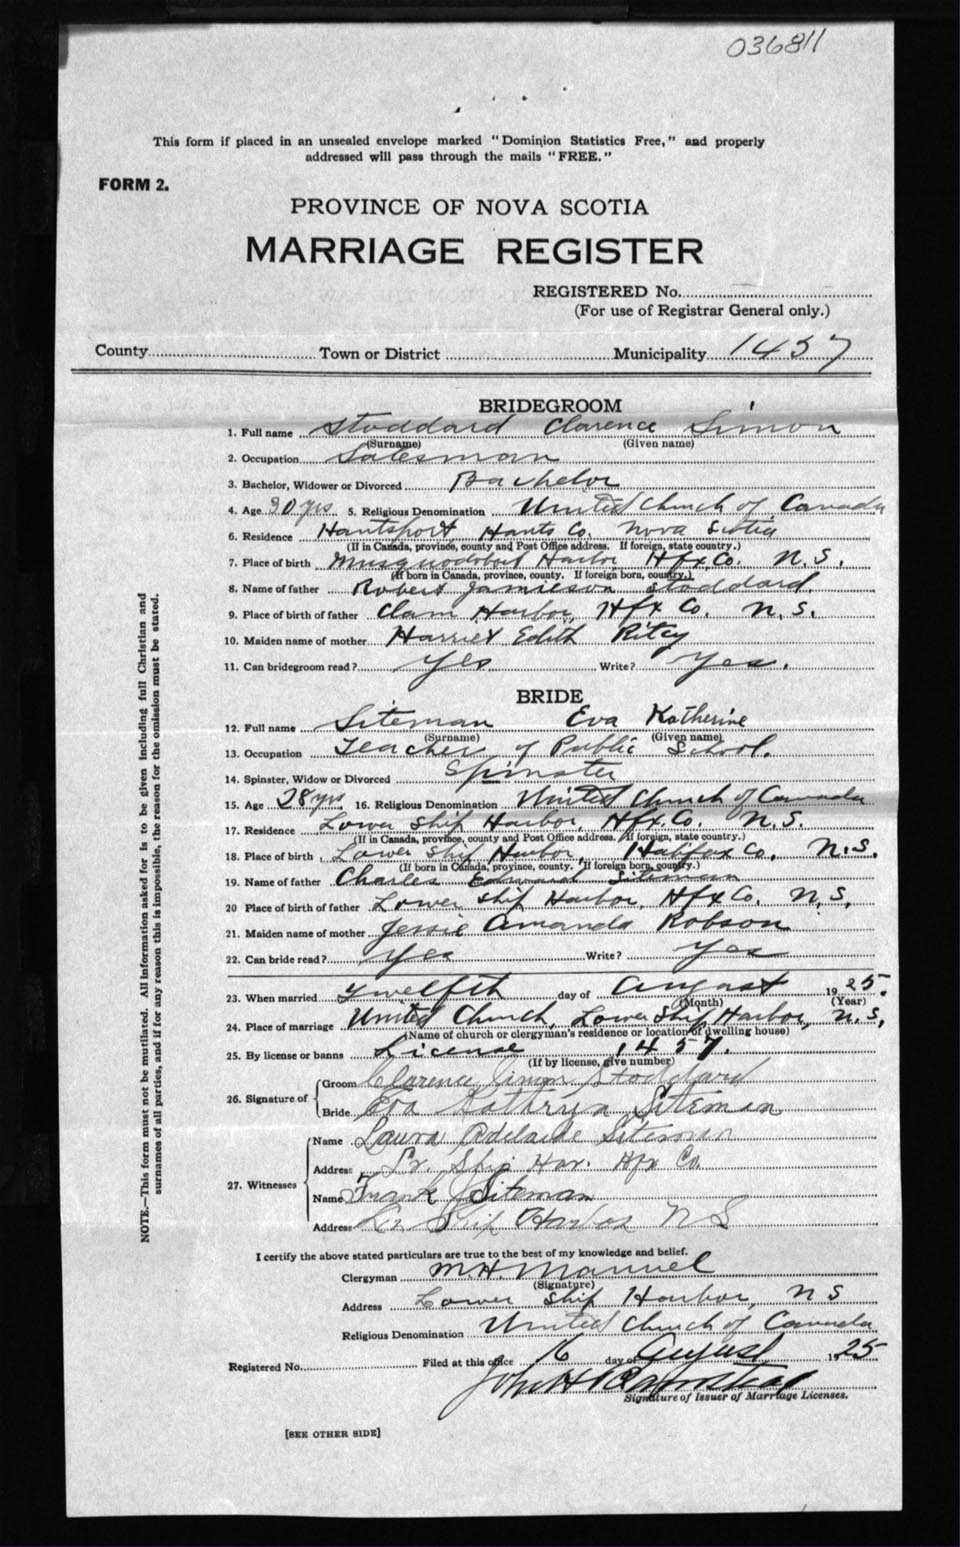 036811
This form if placed in an unsealed envelope marked "Dominion Statistics Free," and properly
addressed will pass through the mails "FREE."
FORM 2.
PROVINCE OF NOVA SCOTIA
MARRIAGE REGISTER
REGISTERED No.
(For use of Registrar General only.)
County Town or District Municipality 1457
BRIDEGROOM
1. Full name Stoddard Clarence Simon
(Surname) (Given name)
2. Occupation Salesman
3. Bachelor, Widower or Divorced Bachelor
4. Age 30 yrs 5. Religious Denomination United Church of Canada
6. Residence Hantsport Hants Co. Nova Scotia
(If in Canada, province, county and Post Office address. If foreign, state country.)
7. Place of birth Musquodoboit Harbor Hfx Co. N.S.
(If born in Canada, province, county. If foreign born, country.)
8. Name of father Robert Jamieson Stoddard
9. Place of birth of father Clam Harbor, Hfx Co. N.S.
10. Maiden name of mother Harriet Edith Ritcy
11. Can bridegroom read? Yes Write? Yes.
BRIDE
12. Full name Siteman Eva Katherine
(Surname) (Given name)
13. Occupation Teacher of Public School.
14. Spinster, Widow or Divorced Spinster
15. Age 28 yrs 16. Religious Denomination United Church of Canada
17. Residence Lower Ship Harbor, Hfx. Co. N.S.
(If in Canada, province, county and Post Office address. If foreign, state country.)
18. Place of birth Lower Ship Harbor, Halifax Co. N.S.
(If born in Canada, province, county. If foreign born, country.)
19. Name of father Charles Edward Siteman
20 Place of birth of father Lower Ship Harbor, Hfx Co. N.S.
21. Maiden name of mother Jessie Amanda Robson
22. Can bride read? Yes Write? Yes
23. When married Twelfth day of August 1925.
(Month) (Year)
24. Place of marriage United Church, Lower Ship Harbor, N.S.
(Name of church or clergyman's residence or location of dwelling house)
25. By license or banns License 1457.
(If by license, give number)
26. Signature of
Groom Clarence Simon Stoddard
Bride Eva Kathryn Siteman
27. Witnesses
Name Laura Adelaide Siteman
Address Lr. Ship Har. Hfx Co.
Name Frank J Siteman
Address Lr Ship Harbor N S
I certify the above stated particulars are true to the best of my knowledge and belief.
Clergyman M.H. Manuel
(Signature)
Address Lower Ship Harbor, N S
Religious Denomination United Church of Canada
Registered No. Filed at this office 16 day of August 1925
John H
Signature of Issuer of Marriage Licenses.
[SEE OTHER SIDE]
NOTE.—This form must not be mutilated. All information asked for is to be given including full Christian and
surnames of all parties, and if for any reason this is impossible, the reason for the omission must be stated.